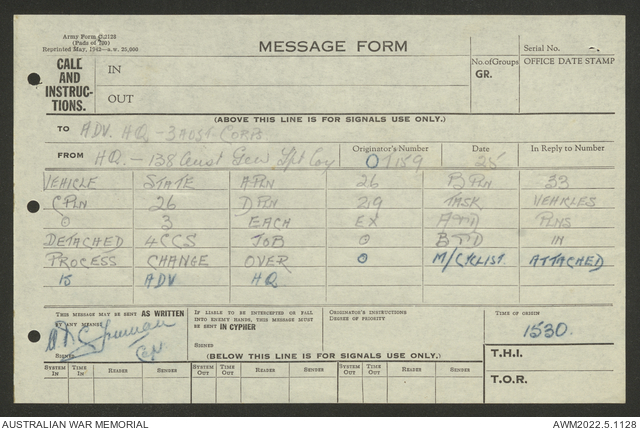 Army Form C.2128
(Pads of 100)
Reprinted May, 1942—s.w. 25,000
MESSAGE FORM
Serial No.
CALL AND INSTRUCTIONS.
IN
OUT
No. of Groups
GR.
OFFICE DATE STAMP
(ABOVE THIS LINE IS FOR SIGNALS USE ONLY.)
TO ADV. HQ - 3 AUST CORPS.
FROM HQ. - 138 Aust Gen Tpt Coy
Originator's Number
O 7159
Date
25
In Reply to Number
VEHICLE STATE A PLN 26 B PLN 33
C PLN 26 D PLN 29 TASK VEHICLES
O 3 EACH EX PLNS
DETACHED 4CCS JOB O IN
PROCESS CHANGE OVER O M/CYCLIST ATTACHED
15 ADV HQ
THIS MESSAGE MAY BE SENT AS WRITTEN
BY ANY MEANS
SIGNED
Capt
IF LIABLE TO BE INTERCEPTED OR FALL
INTO ENEMY HANDS, THIS MESSAGE MUST
BE SENT IN CYPHER
SIGNED
ORIGINATOR'S INSTRUCTIONS
DEGREE OF PRIORITY
TIME OF ORIGIN
1530.
(BELOW THIS LINE IS FOR SIGNALS USE ONLY.)
T.H.I.
SYSTEM IN TIME IN READER SENDER SYSTEM OUT TIME OUT READER SENDER SYSTEM OUT TIME OUT READER SENDER
T.O.R.
AUSTRALIAN WAR MEMORIAL
AWM2022.5.1128